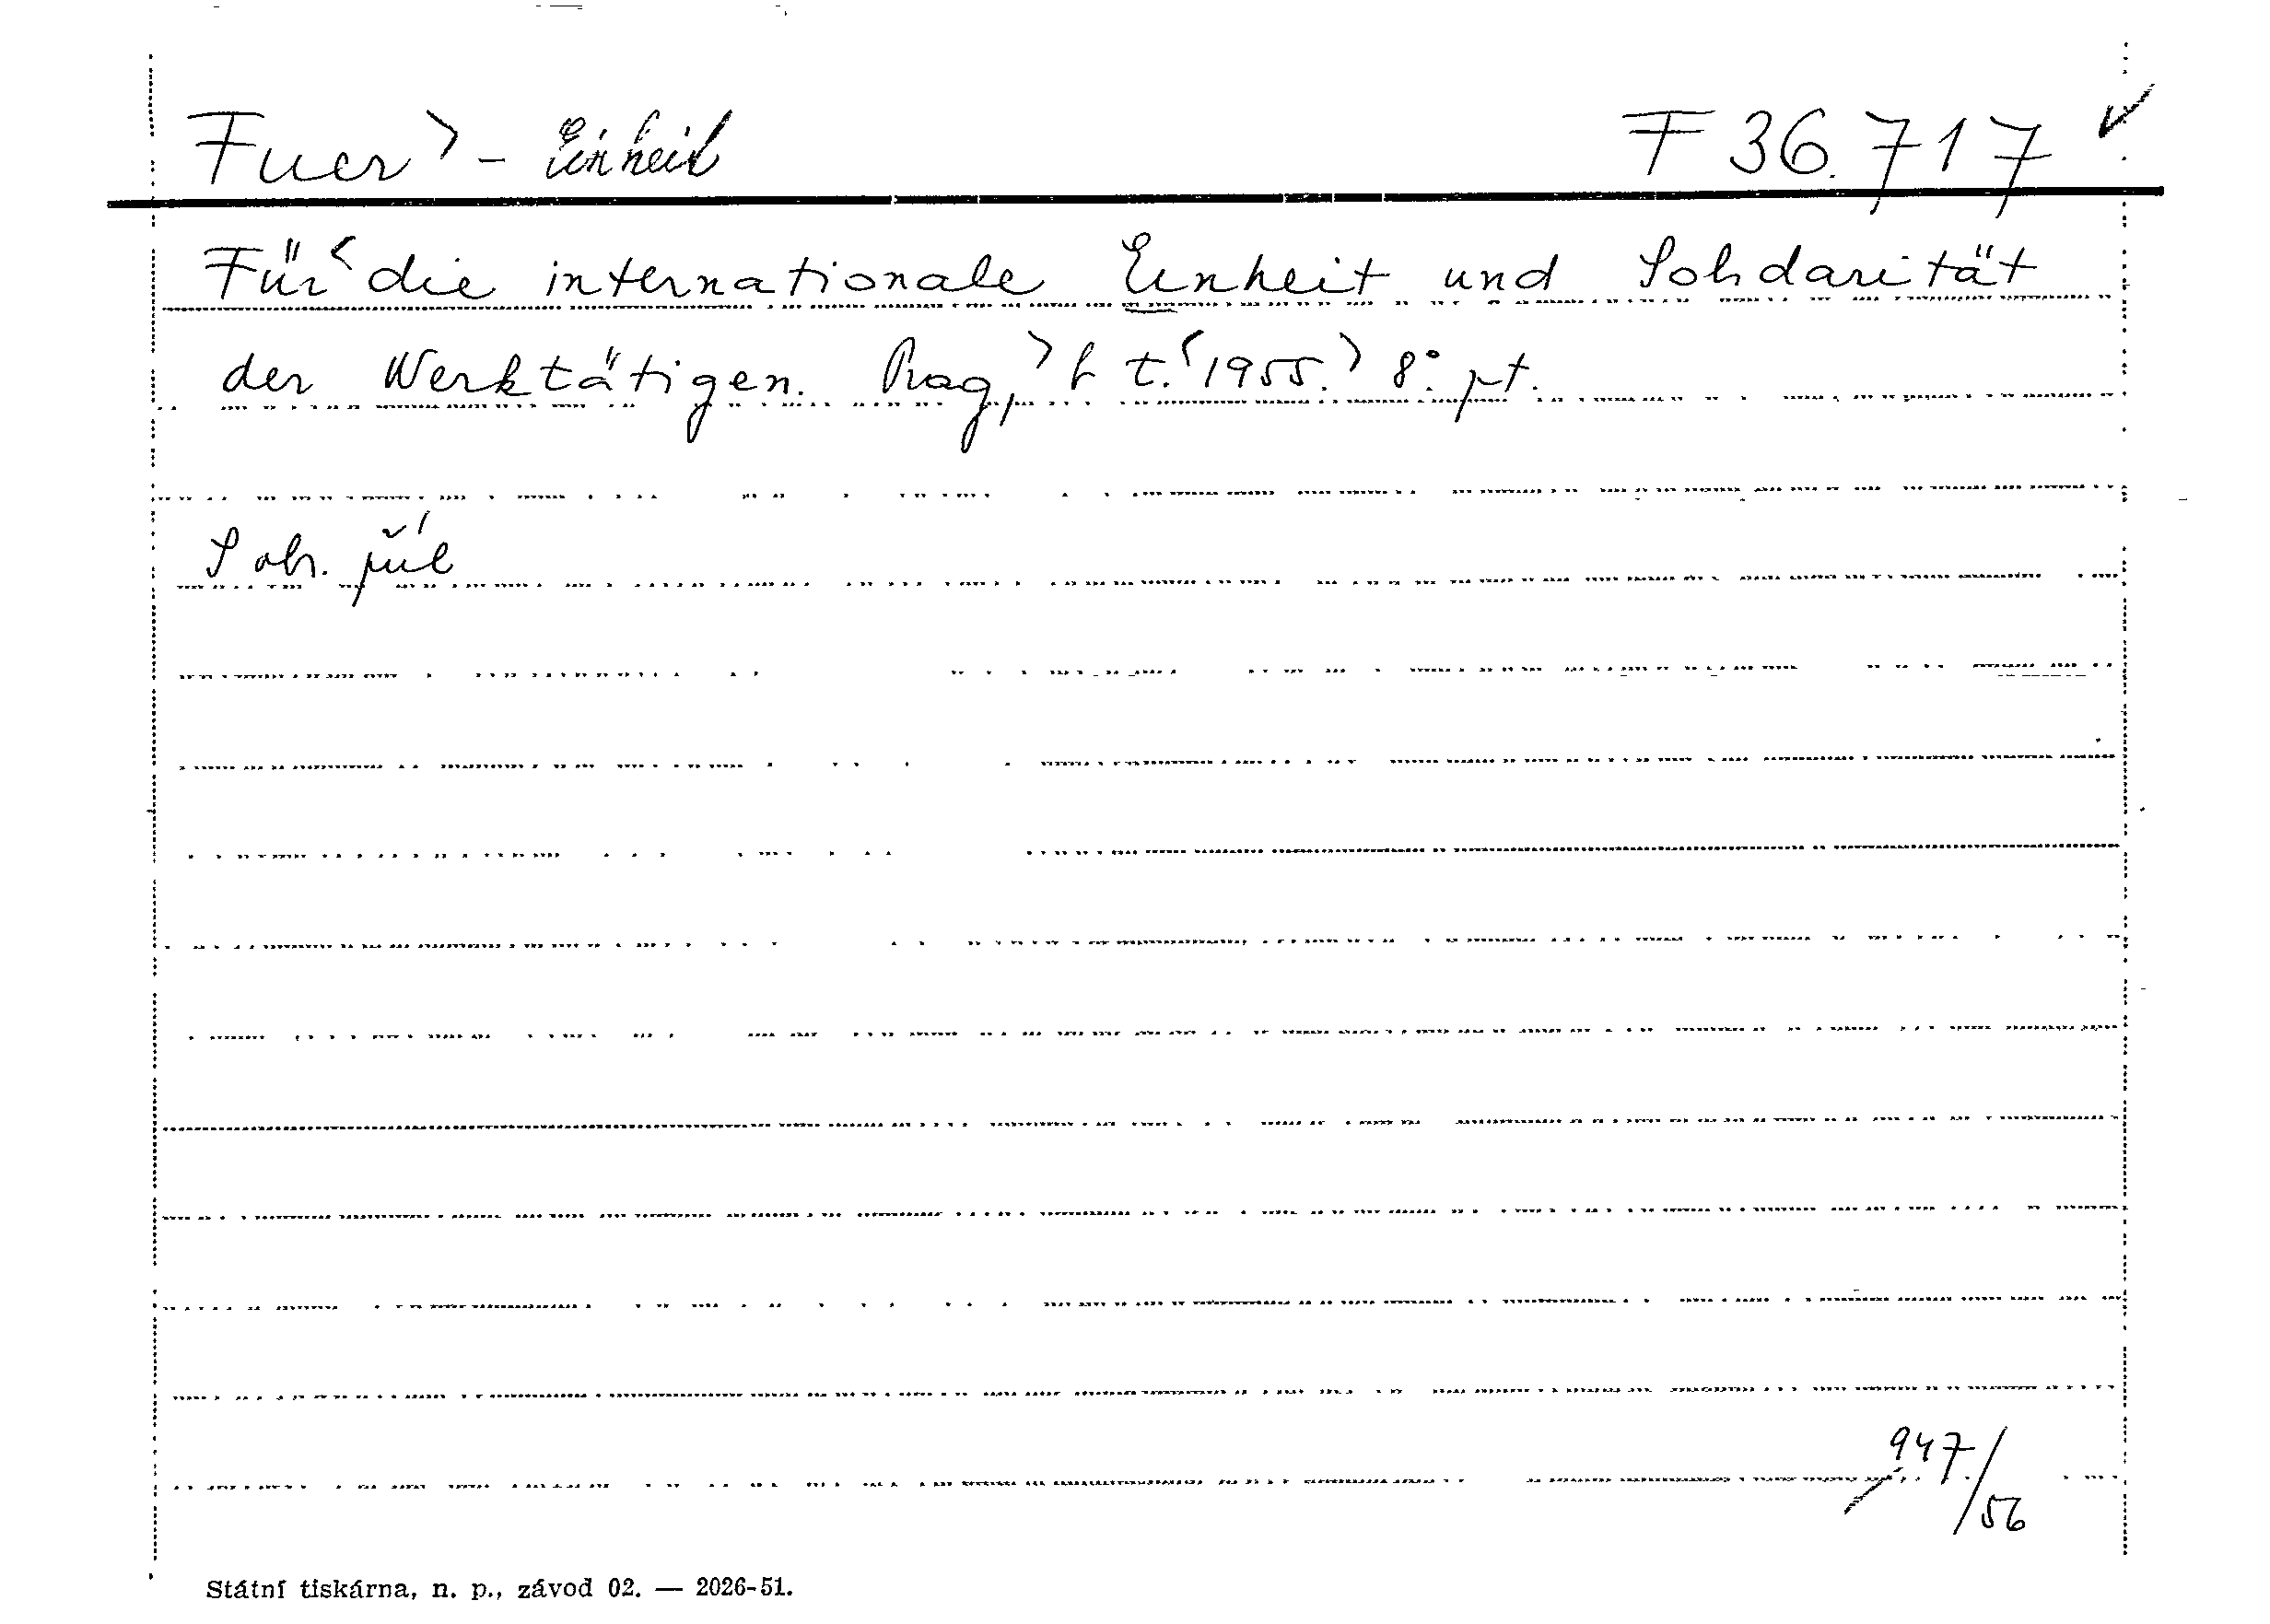 Fuer > - Einheit F 36.717 ✓
Für < die internationale Einheit und Solidarität
der Werktätigen. Prag, > b. t. < 1955. > 8°. pt.
S obr. příl
947/56
Státní tiskárna, n. p., závod 02. — 2026-51.